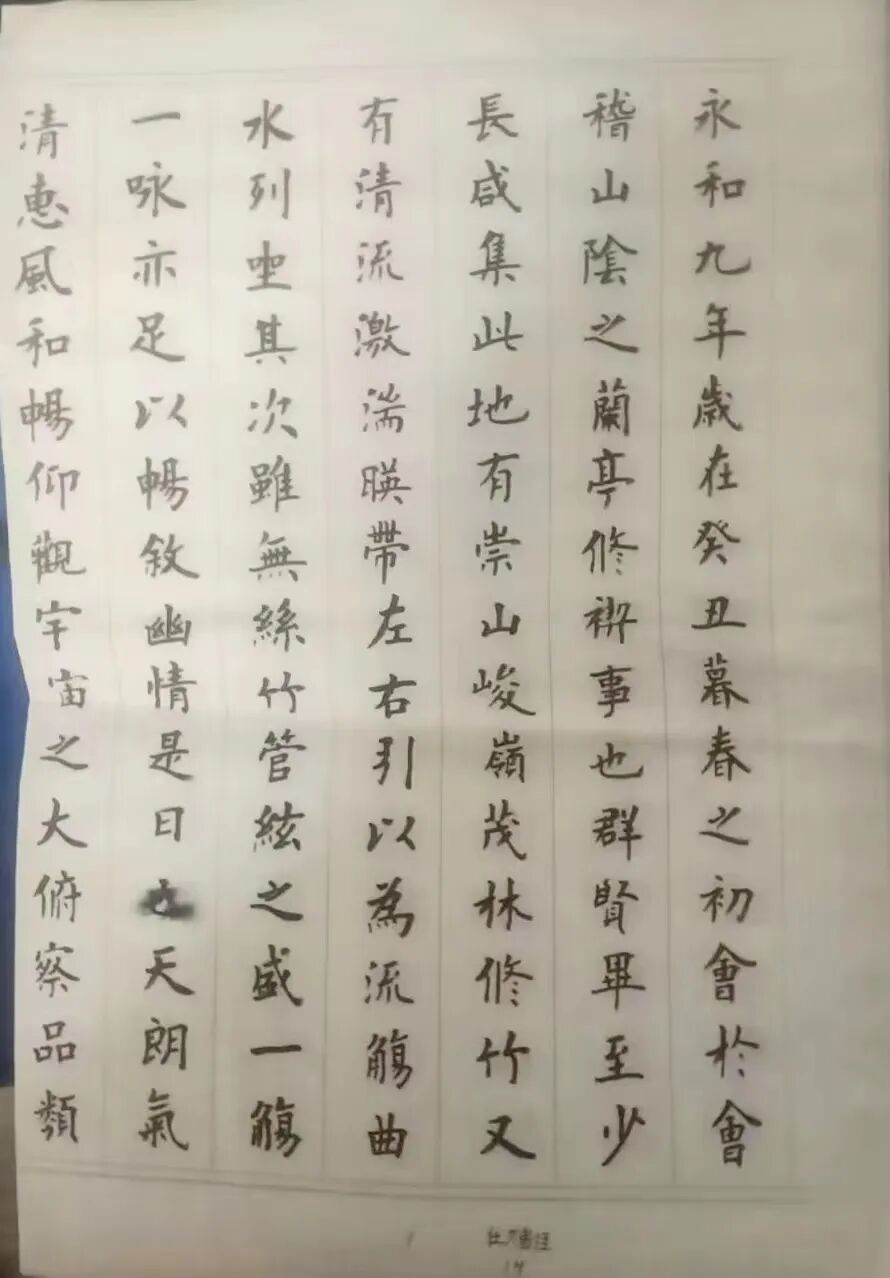 永和九年歲在癸丑暮春之初會於會
稽山陰之蘭亭修禊事也群賢畢至少
長咸集此地有崇山峻嶺茂林修竹又
有清流激湍暎帶左右引以為流觴曲
水列坐其次雖無絲竹管絃之盛一觴
一詠亦足以暢敘幽情是日也天朗氣
清惠風和暢仰觀宇宙之大俯察品類